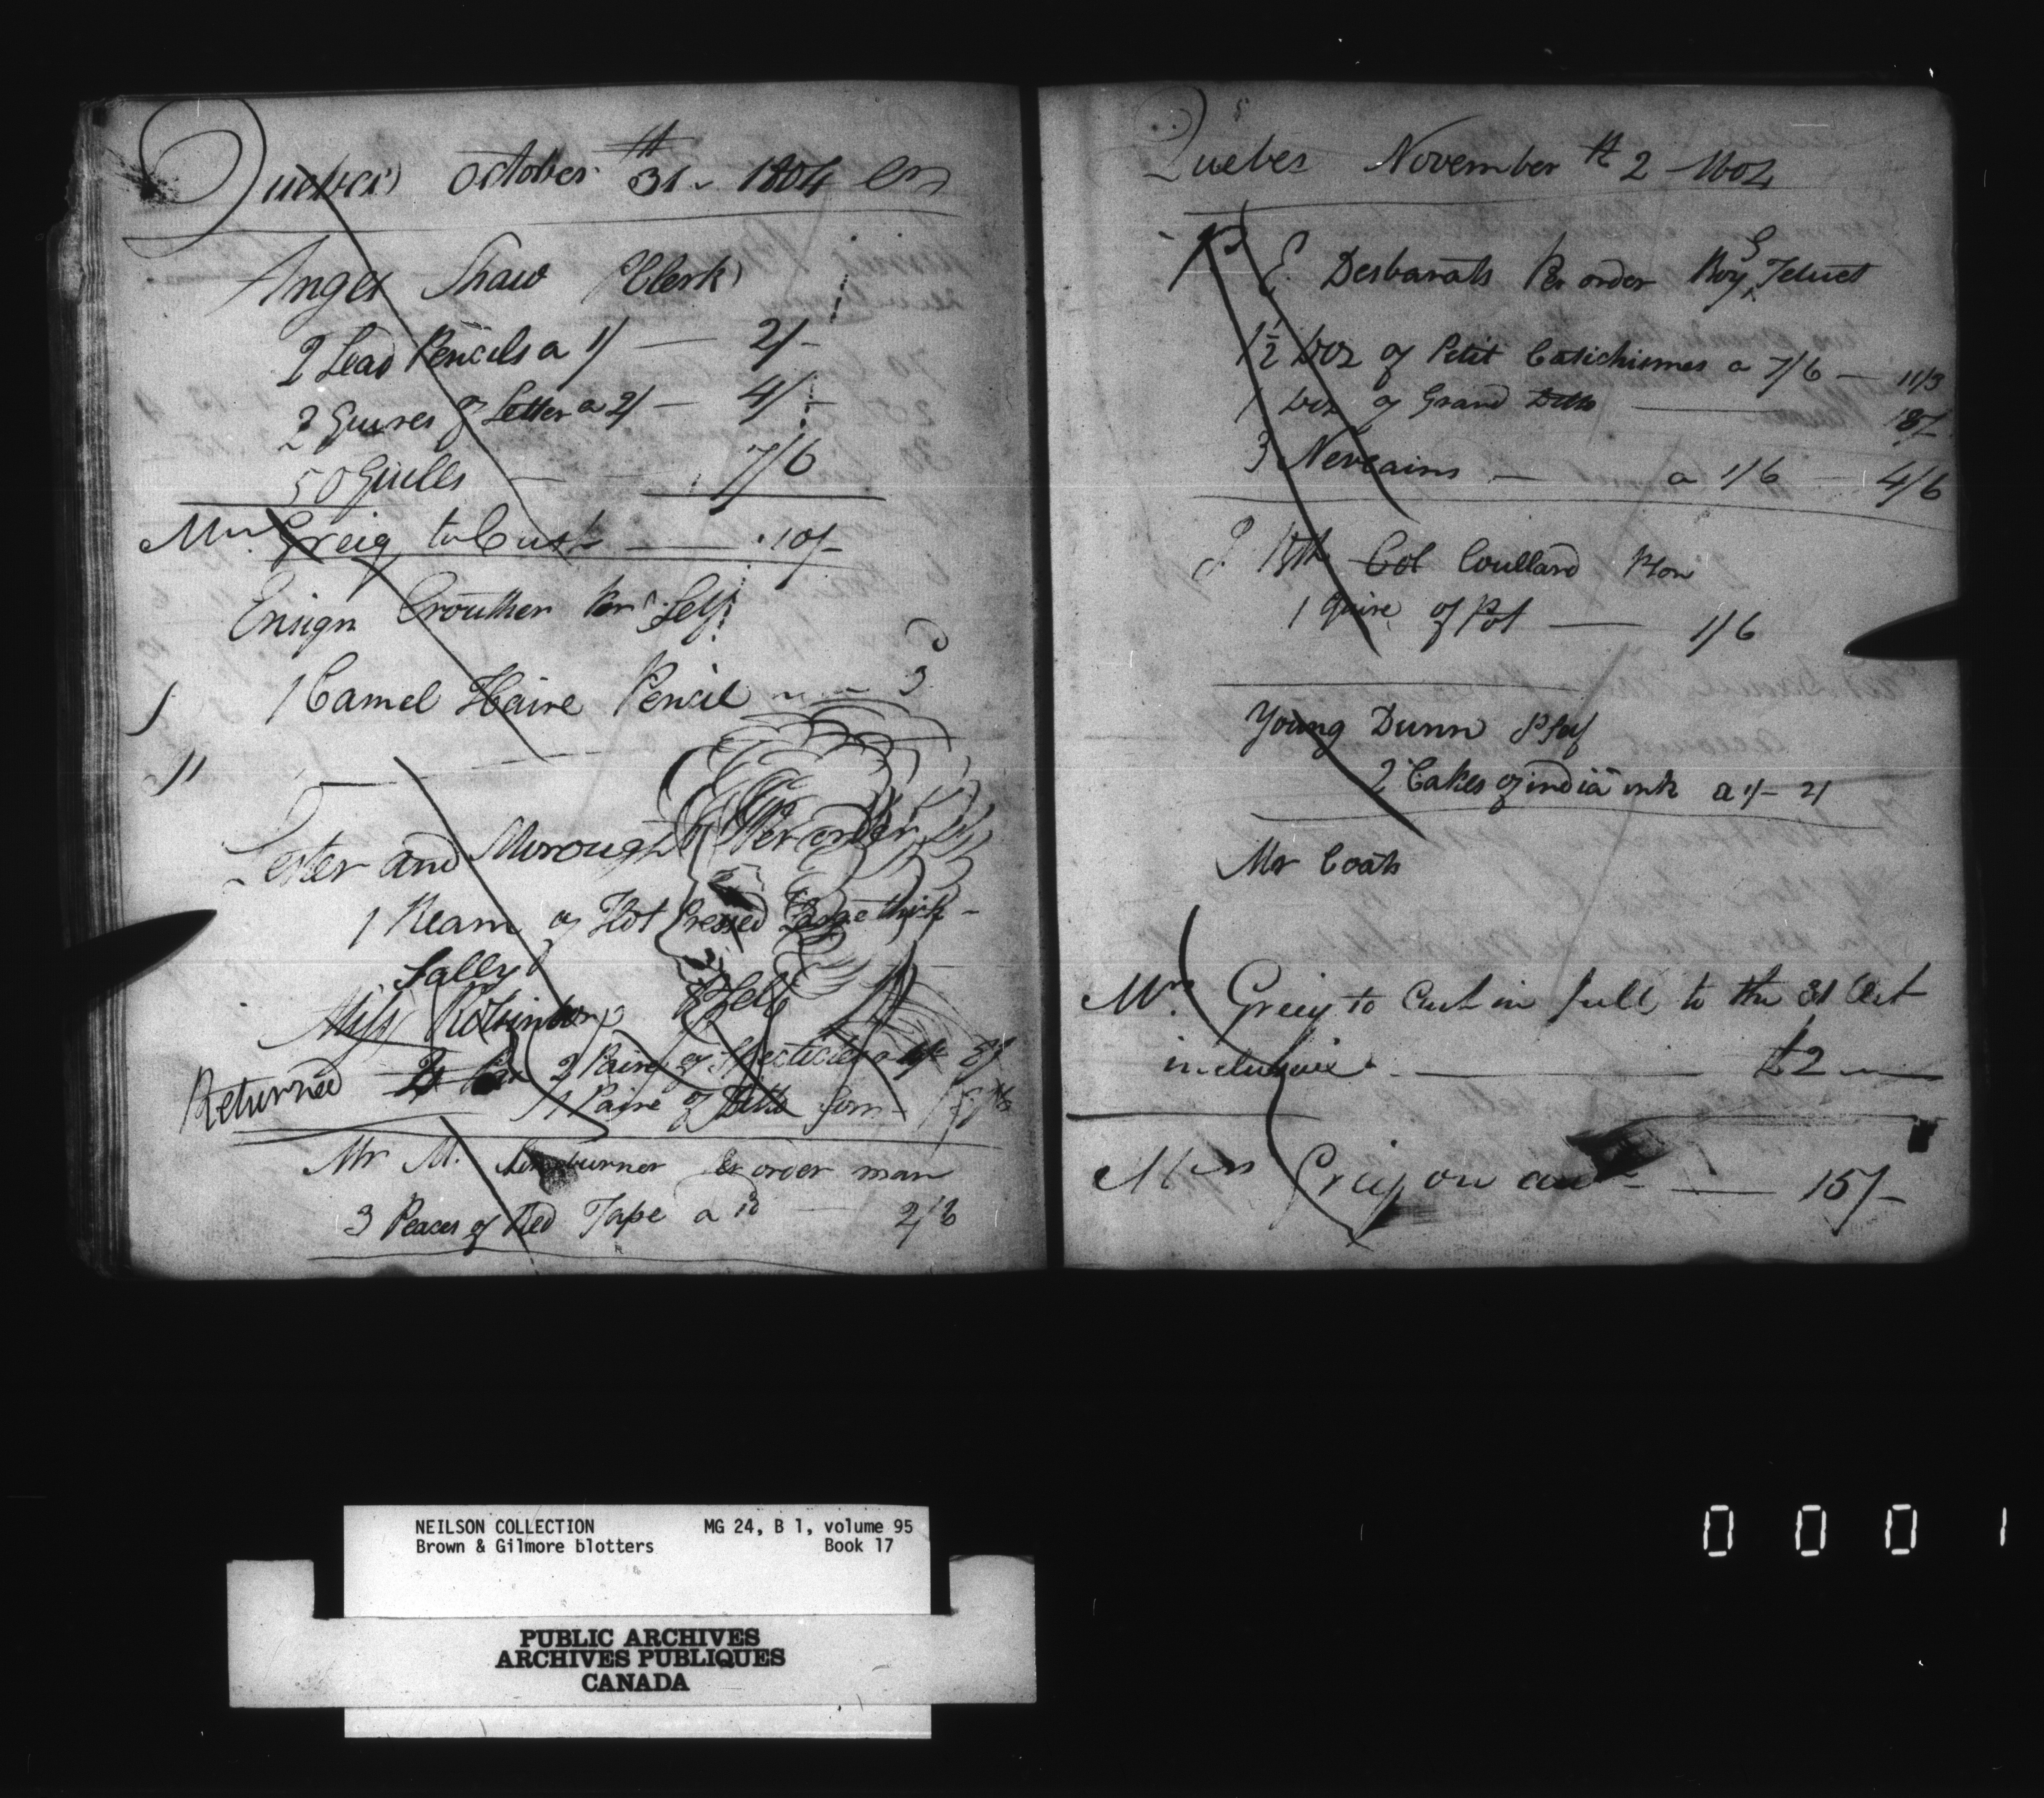 Quebec October 31th 1804
Anges Shaw Clerk
2 Lead Pencils a 1/ — 2/-
2 Quires of Letter a 2/ — 4/-
50 Quills — 7/6
Mrs Greig to Cash — 10/-
Ensign Crouther Per Self
1 Camel Haire Pencil 3d
Lester and Morough Per order
1 Ream of Hot Pressed Large thick -
Sally
Miss Robinson P Self
Returned 2 2 Paire of Specticles a 4/ 8/
1 Paire of Ditto
Mr M. Per order man
3 Peaces of Red Tape a 10 2/6
Quebec November th 2 1804
P E Desbarats Per order Roy, Teluet
1½ Doz of Petit Catichismes a 7/6 — 11/3
1 Doz of Grand Ditto — 18/-
3 Neveains — a 1/6 — 4/6
Col Coullard
1 Quire of Pot — 1/6
Young Dunn P Self
2 Cakes of india ink a 1/- 2/
Mr Coats
Mrs Greig to Cash in full to the 31 Oct
inclusive — £2
Mrs Greig on acct — 15/-
NEILSON COLLECTION MG 24, B 1, volume 95
Brown & Gilmore blotters Book 17
PUBLIC ARCHIVES
ARCHIVES PUBLIQUES
CANADA
0 0 0 1